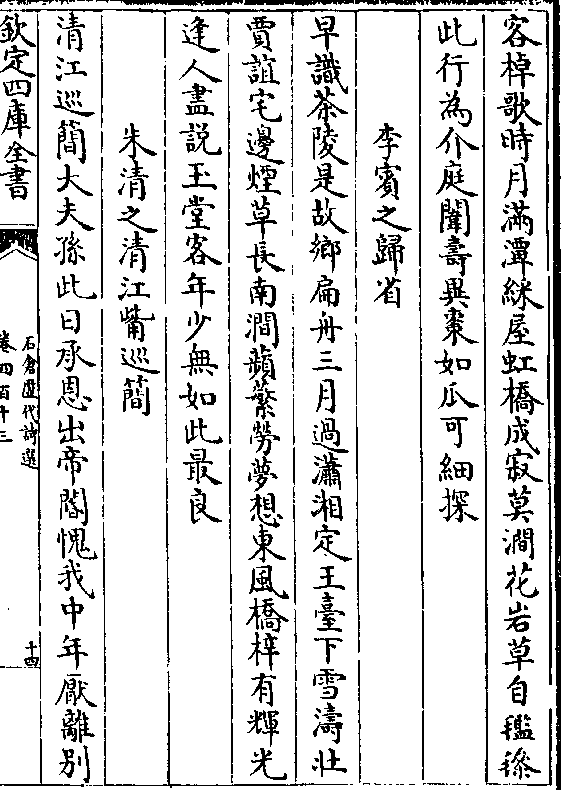 客棹歌時月滿潭綵屋虹橋成寂莫澗花岩草自𩯭鬖
此行為介庭闈壽異棗如瓜可細探
李賓之歸省
早識茶陵是故鄉扁舟三月過瀟湘定王臺下雪濤壯
賈誼宅邊煙草長南澗蘋蘩勞夢想東風橋梓有輝光
逢人盡説玉堂客年少無如此最良
朱清之清江觜巡簡
清江巡簡大夫孫此日承恩出帝閽愧我中年厭離别
欽定四庫全書
石倉歴代詩選
卷四百十三
十四